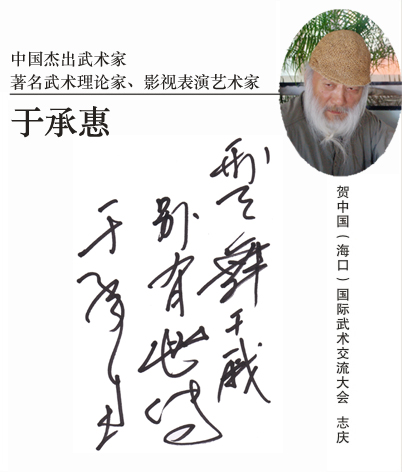 中国杰出武术家
著名武术理论家、影视表演艺术家
于承惠
贺中国（海口）国际武术交流大会 志庆
刑天舞干戚
别有世
于承惠